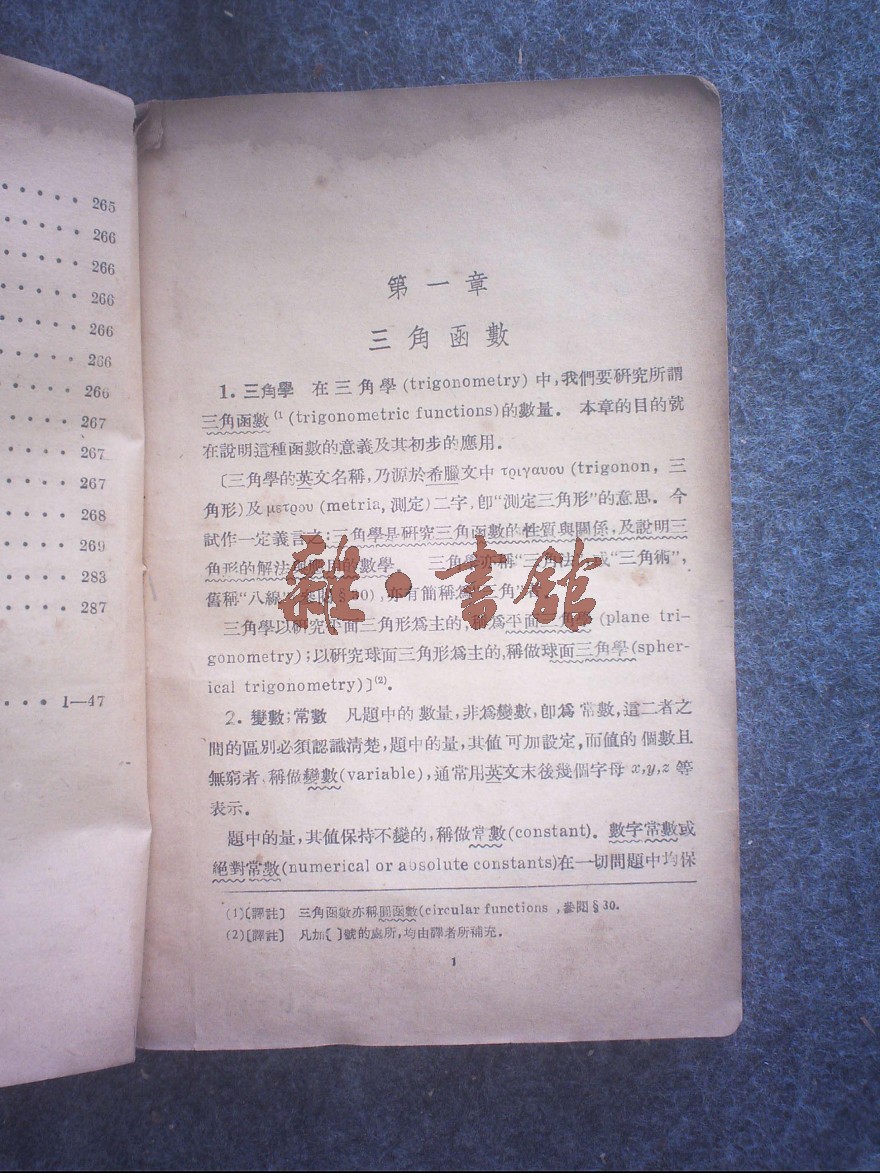 265
266
266
266
266
266
266
267
267
267
268
269
283
287
1—47
第一章
三角函數
1. 三角學 在三角學 (trigonometry) 中,我們要研究所謂
三角函數⁽¹ (trigonometric functions)的數量. 本章的目的號
在說明這種函數的意義及其初步的應用.
〔三角學的英文名稱,乃源於希臘文中 τριγαυου (trigonon, 三
角形)及 μετρου (metria, 測定)二字,卽“測定三角形”的意思. 今
試作一定義言之:三角學是研究三角函數的性質與關係,及說明三
角形的解法與應用的數學. 三角學亦稱“三角法”或“三角術”,
舊稱“八線”(參閱§30),亦有簡稱爲“三角”
三角學以研究平面三角形爲主的,稱爲平面三角學 (plane tri-
gonometry);以研究球面三角形爲主的,稱做球面三角學(spher-
ical trigonometry)〕⁽²⁾.
2. 變數;常數 凡題中的數量,非爲變數,卽爲常數,這二者之
間的區別必須認識清楚,題中的量,其值可加設定,而值的個數且
無窮者,稱做變數(variable),通常用英文末後幾個字母 x,y,z 等
表示.
題中的量,其值保持不變的,稱做常數(constant). 數字常數或
絕對常數(numerical or absolute constants)在一切問題中均保
(1)〔譯註〕 三角函數亦稱圓函數(circular functions ,參閱§30.
(2)〔譯註〕 凡加〔 〕號的處所,均由譯者所補充.
1
雜·書館